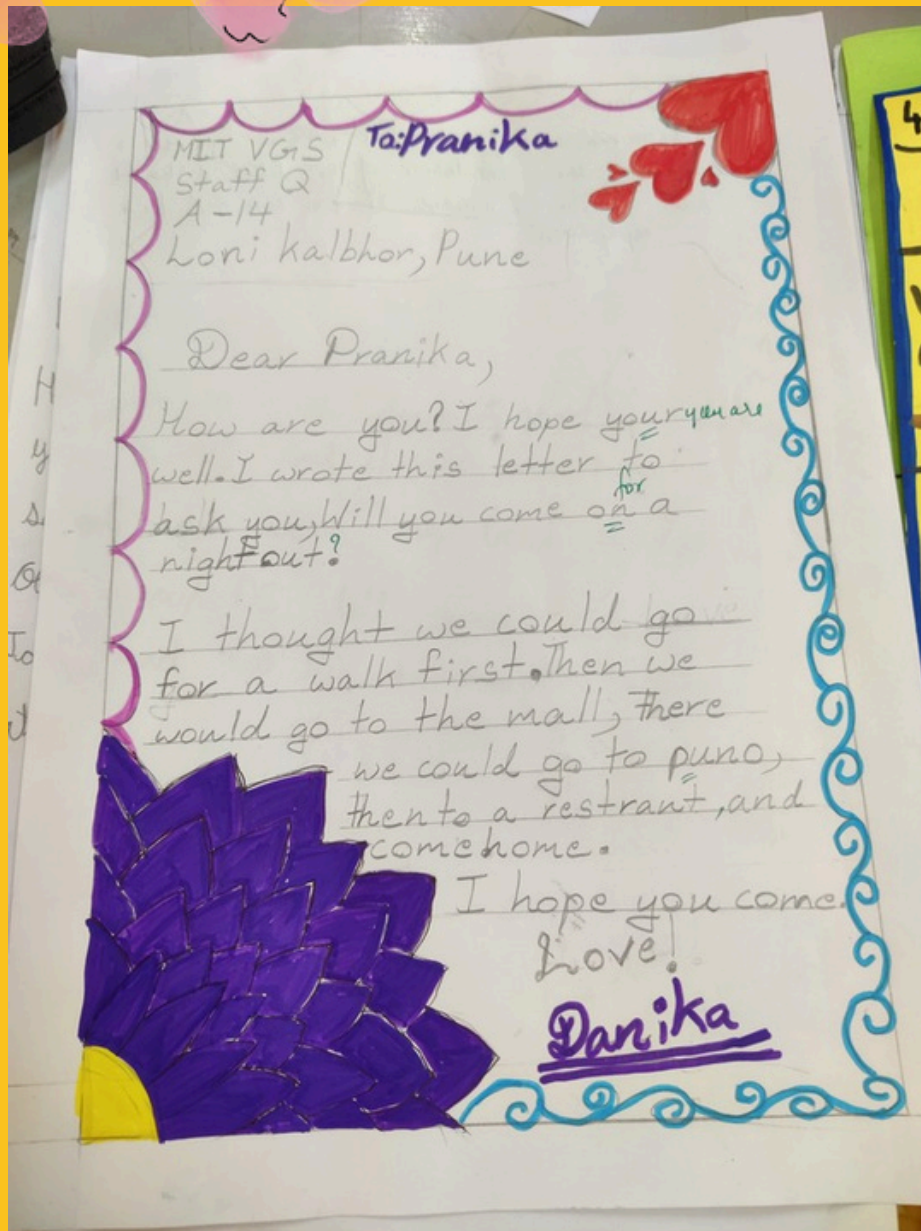 To: Pranika
MIT VGS
Staff Q
A-14
Loni kalbhor, Pune
Dear Pranika,
How are you? I hope your you are
well. I wrote this letter to
for
ask you, Will you come on a
night out?
I thought we could go
for a walk first. Then we
would go to the mall, there
we could go to puno,
then to a restrant, and
come home.
I hope you come.
Love!
Danika